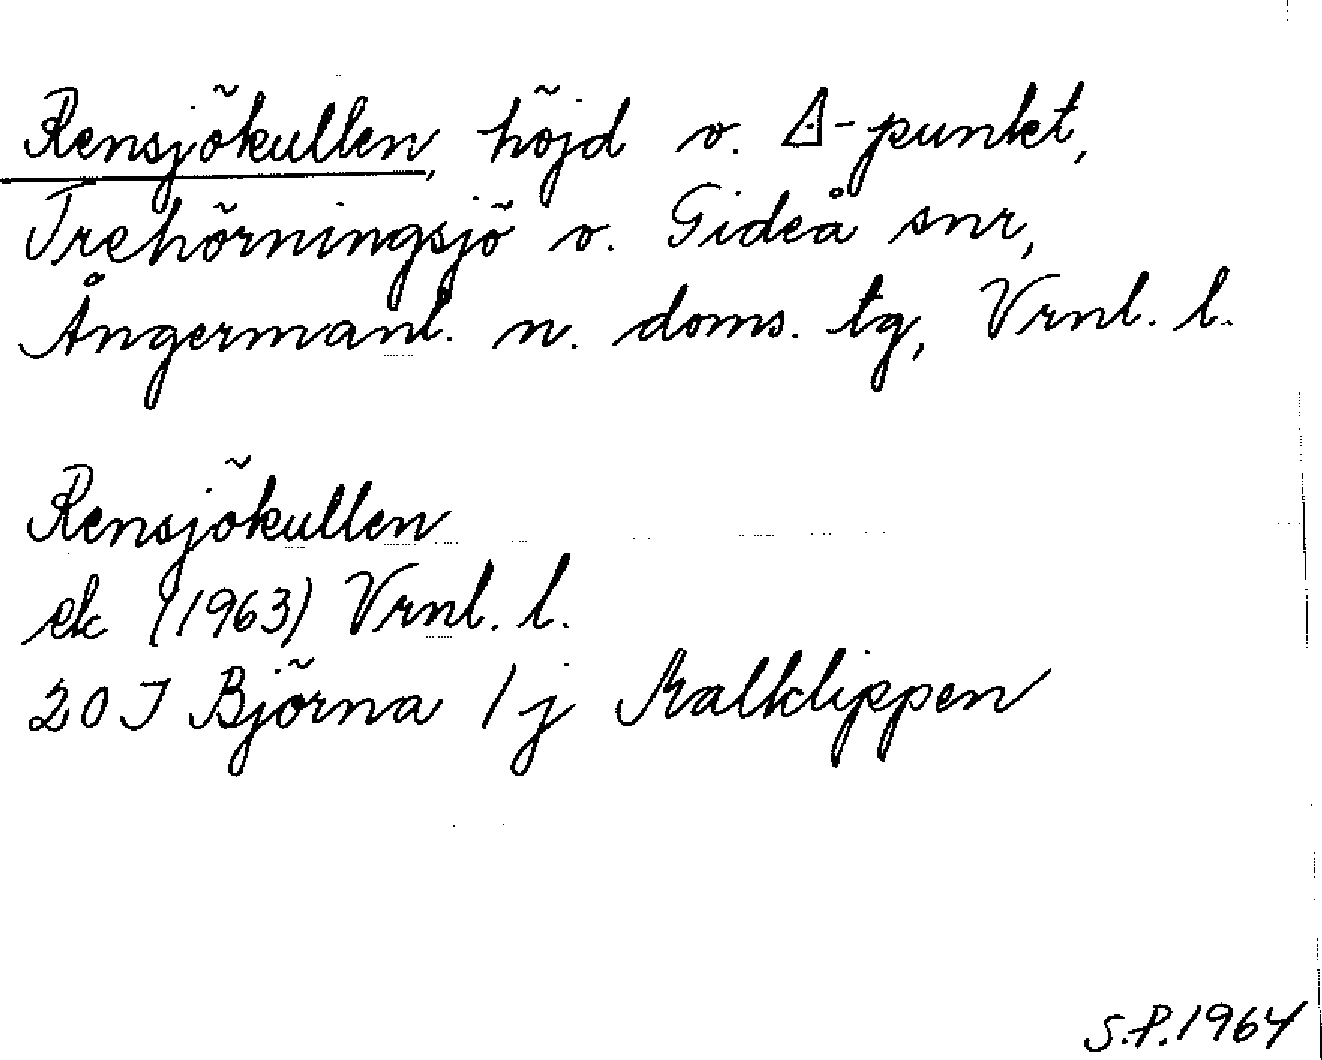 Rensjökullen, höjd o. Δ-punkt,
Trehörningsjö o. Gideå snr,
Ångermanl. n. doms. tg, Vrnl. l.
Rensjökullen
ek (1963) Vrnl. l.
20 J Björna 1j Kalklippen
S.P. 1964